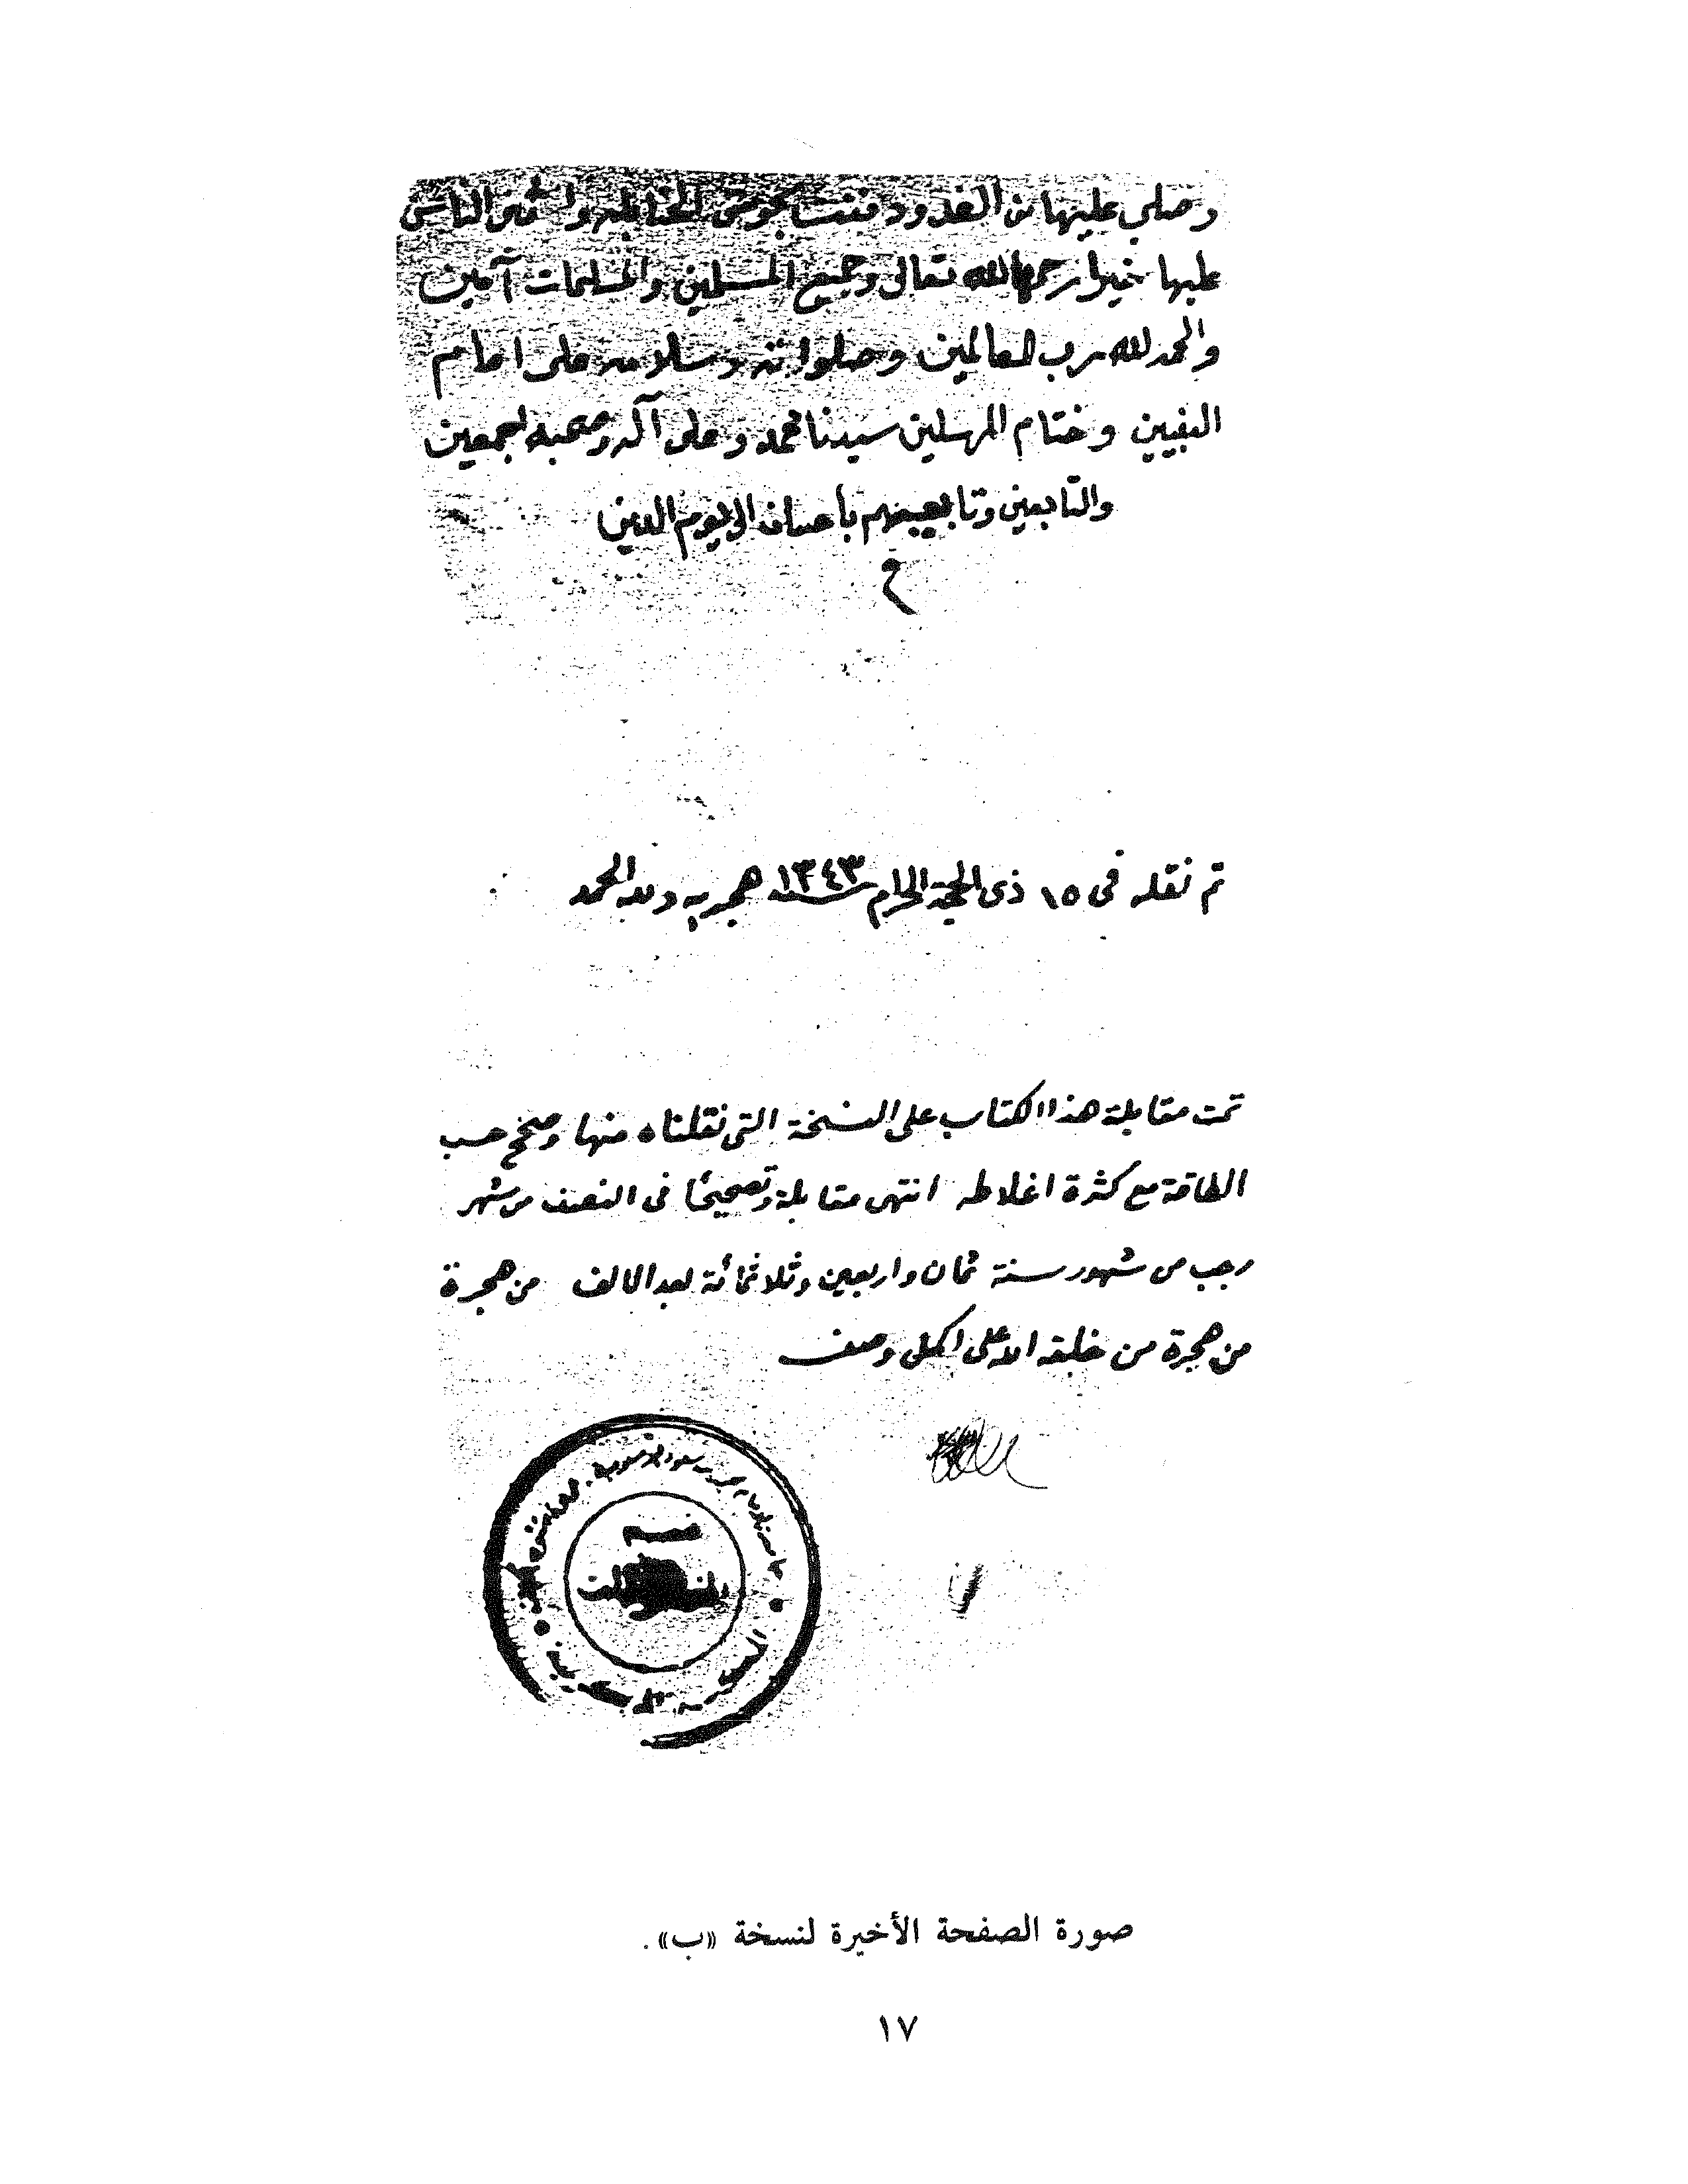 وصلي عليها من الغد ودفنت بحوش الحنابله واثنى الناس
عليها خيرا رحمها الله تعالى وجميع المسلمين والمسلمات آمين
والحمد لله رب العالمين وصلواته وسلامه على امام
النبيين وختام المرسلين سيدنا محمد وعلى آله وصحبه اجمعين
والتابعين وتابعيهم بأحسان الى يوم الدين
م
تم نقله في ١٥ ذى الحجة الحرام سنة ١٣٤٣ هجريه ولله الحمد
تمت مقابلة هذا الكتاب على النسخة التي نقلناه منها وصحح حسب
الطاقة مع كثرة اغلاطه انتهى مقابلة وتصحيحًا فى النصف من شهر
رجب من شهور سنة ثمان واربعين وثلاثمائة بعد الالف من هجرة
من هجرة من خلقه الله على اكمل وصف
صورة الصفحة الأخيرة لنسخة «ب».
١٧